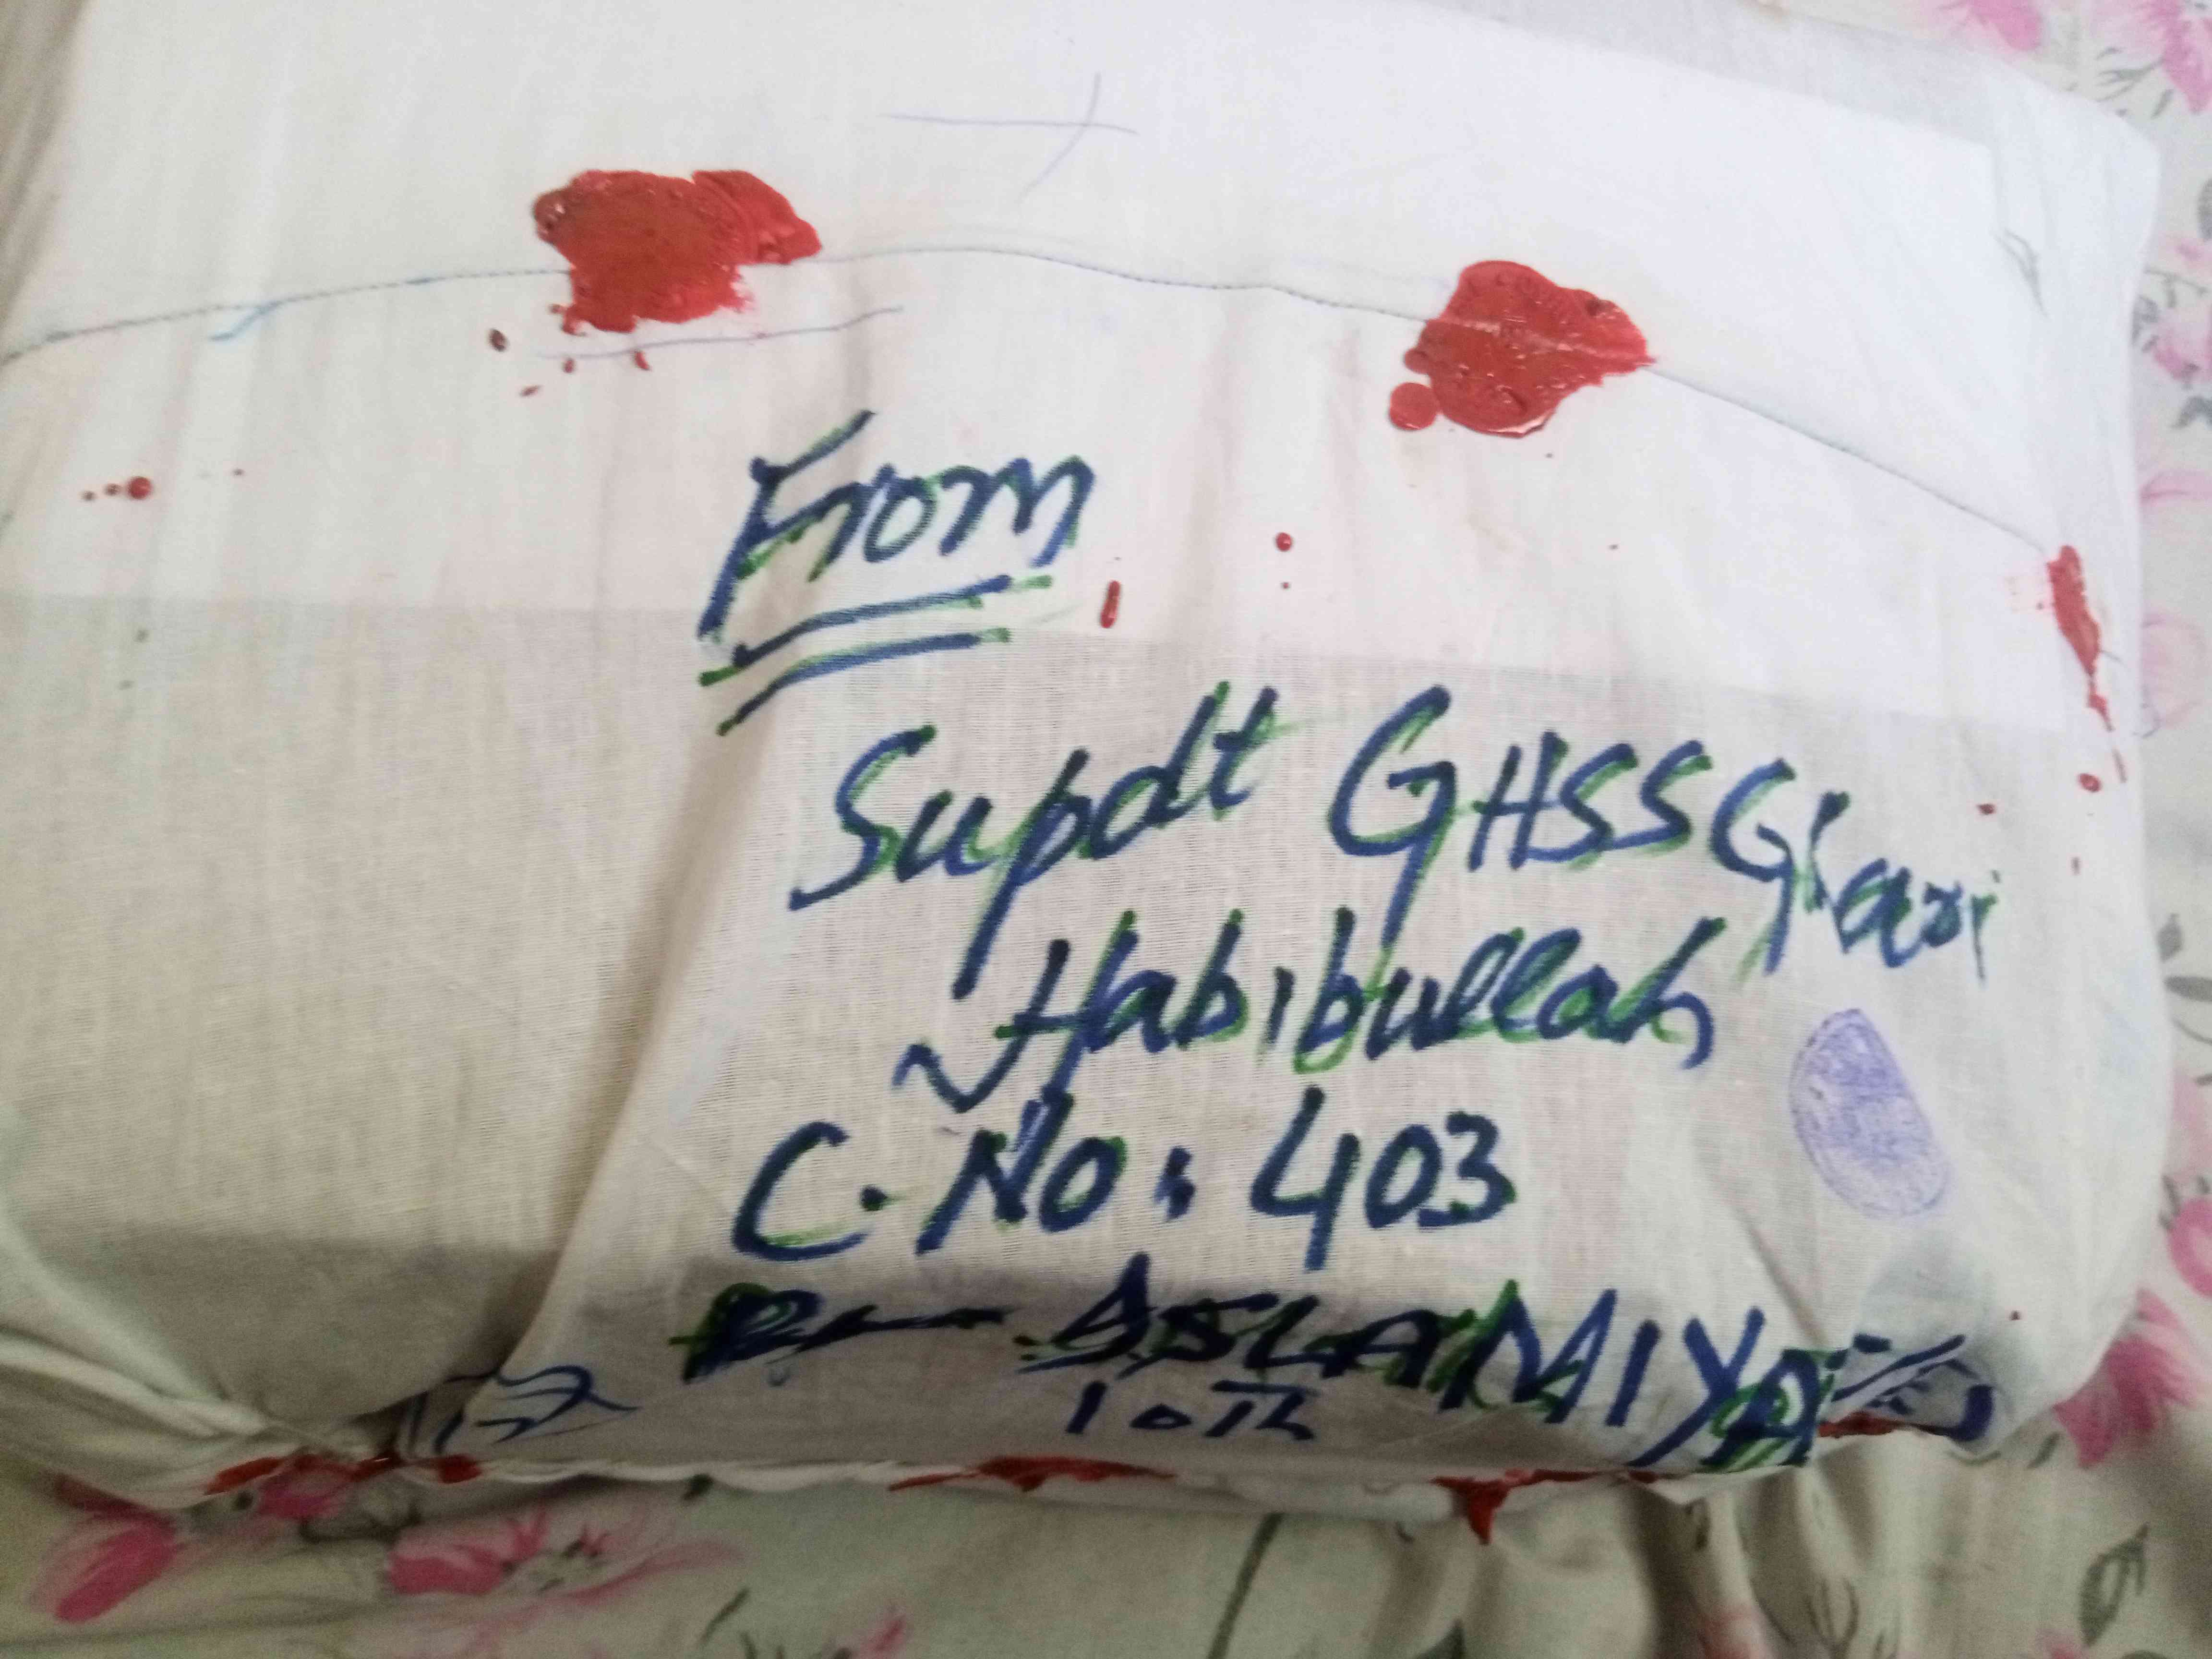 From
Supdt GHSS Giari
Habibullah
C. No: 403
ISLAMIYAT
10th